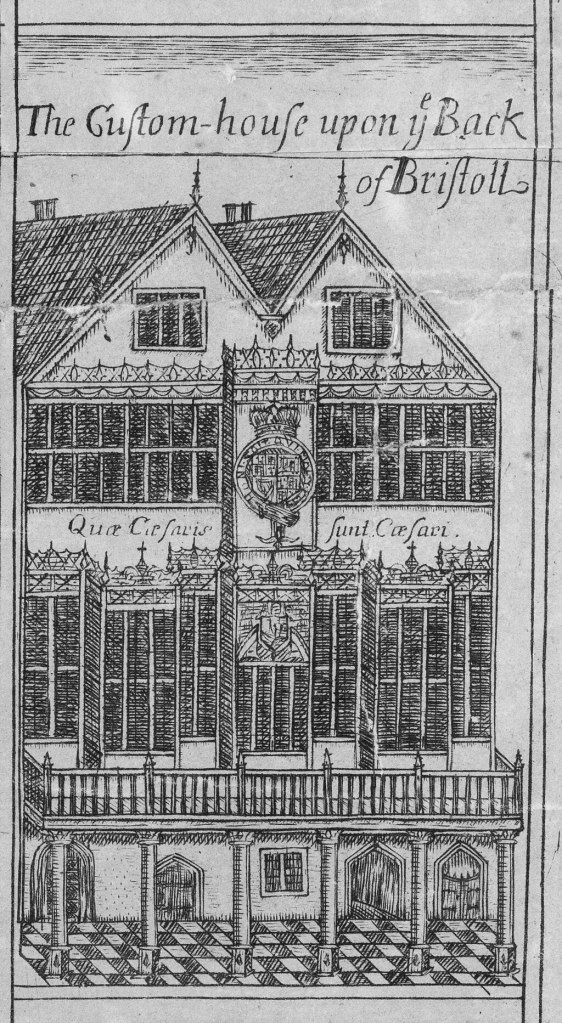 The Cuſtom-houſe upon yͤ Back
of Briſtoll
Quæ Cæſaris ſunt Cæſari.